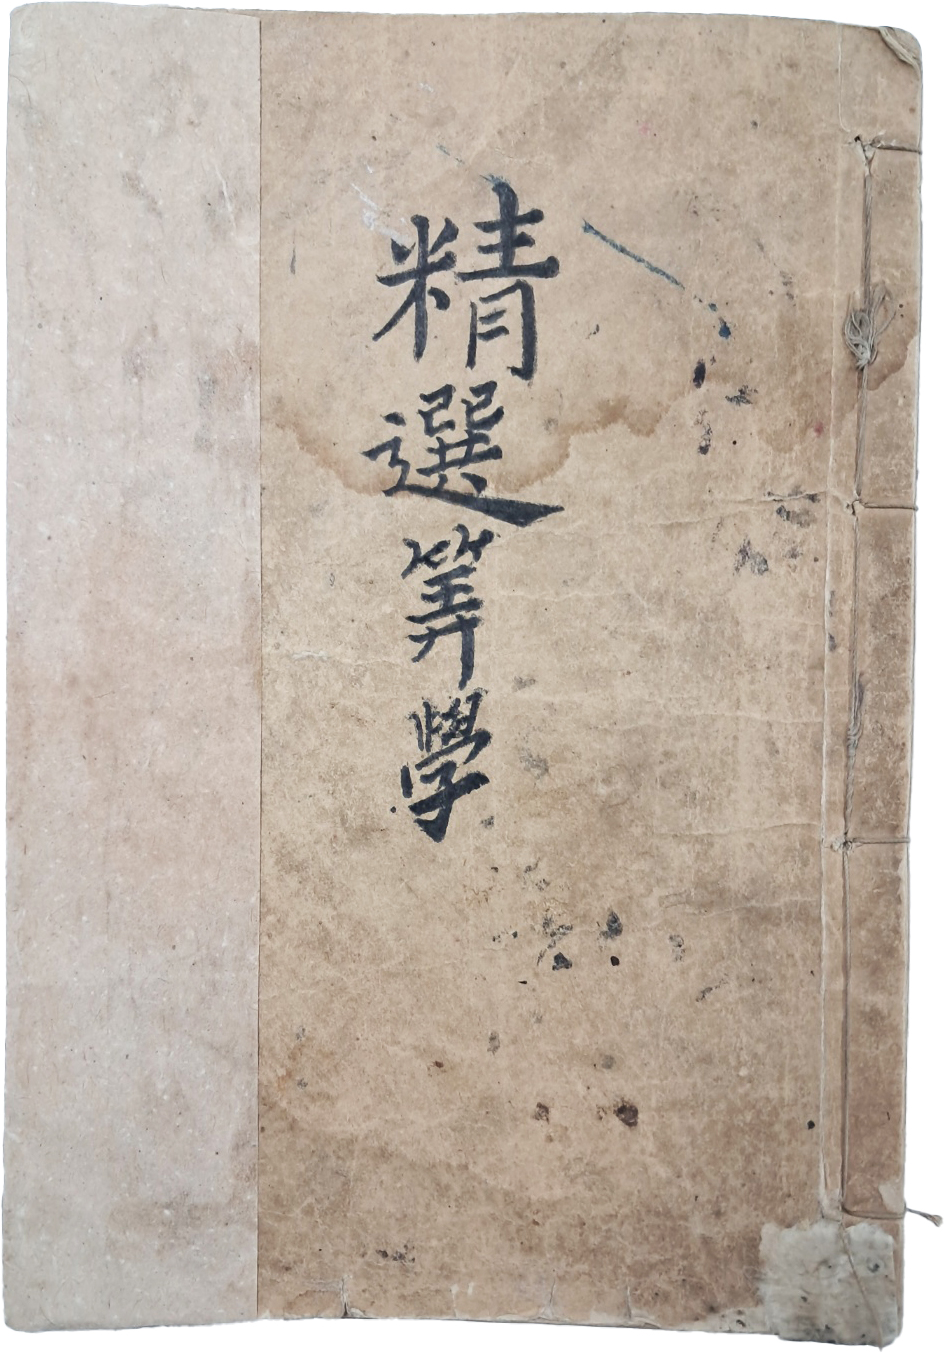 精選筭學